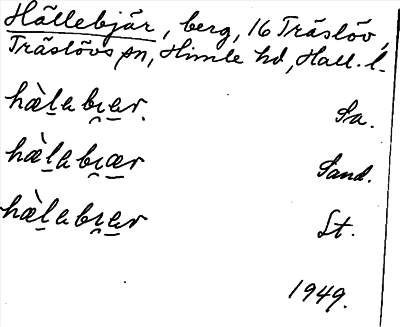 Hällebjär, berg, 16 Träslöv,
Träslövs sn, Himle hd, Hall. l.
hæ̀l̲abɪ̯a̲r. Sa.
hæ̀l̲abɪ̯æ̲r Sand.
hæ̀l̲abɪ̯a̲r St.
1949.